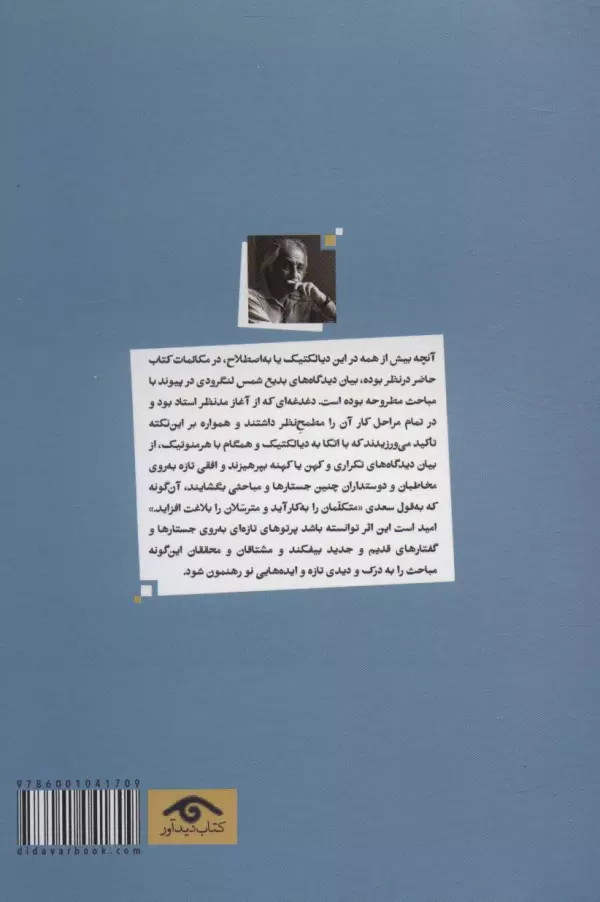 آنچه بیش از همه در این دیالکتیک یا به‌اصطلاح، در مکالمات کتاب
حاضر درنظر بوده، بیان دیدگاه‌های بدیع شمس لنگرودی در پیوند با
مباحث مطروحه بوده است. دغدغه‌ای که از آغاز مدنظر استاد بود و
در تمام مراحل کار آن را مطمحِ‌نظر داشتند و همواره بر این‌نکته
تأکید می‌ورزیدند که با اتکا به دیالکتیک و همگام با هرمنوتیک، از
بیان دیدگاه‌های تکراری و کهن یا کهنه بپرهیزند و افقی تازه به‌روی
مخاطبان و دوستداران چنین جستارها و مباحثی بگشایند، آن‌گونه
که به‌قول سعدی «متکلّمان را به‌کارآید و مترسّلان را بلاغت افزاید.»
امید است این اثر توانسته باشد پرتوهای تازه‌ای به‌روی جستارها و
گفتارهای قدیم و جدید بیفکند و مشتاقان و محققان این‌گونه
مباحث را به درک و دیدی تازه و ایده‌هایی نو رهنمون شود.
9786001041709
didavarbook.com
کتاب دیدآور